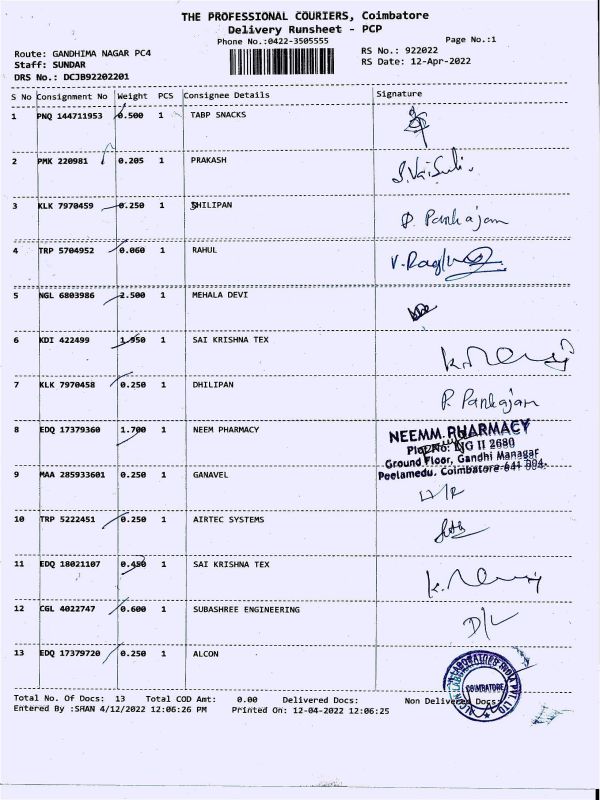 THE PROFESSIONAL COURIERS, Coimbatore
Delivery Runsheet - PCP
Phone No.:0422-3505555
Page No.:1
Route: GANDHIMA NAGAR PC4
RS No.: 922022
Staff: SUNDAR
RS Date: 12-Apr-2022
DRS No.: DCJB92202201
S No Consignment No Weight PCS Consignee Details Signature
1 PNQ 144711953 0.500 1 TABP SNACKS
2 PMK 220981 0.205 1 PRAKASH
3 KLK 7970459 0.250 1 DHILIPAN P. Pankajam
4 TRP 5704952 0.060 1 RAHUL
5 NGL 6803986 2.500 1 MEHALA DEVI
6 KDI 422499 1.950 1 SAI KRISHNA TEX
7 KLK 7970458 0.250 1 DHILIPAN P. Pankajam
8 EDQ 17379360 1.700 1 NEEM PHARMACY
NEEMM PHARMACY
Plot No: NG II 2680
Ground Floor, Gandhi Managar
Peelamedu, Coimbatore-641 004.
9 MAA 285933601 0.250 1 GANAVEL
10 TRP 5222451 0.250 1 AIRTEC SYSTEMS
11 EDQ 18021107 0.450 1 SAI KRISHNA TEX
12 CGL 4022747 0.600 1 SUBASHREE ENGINEERING D/L
13 EDQ 17379720 0.250 1 ALCON
COIMBATORE
Total No. Of Docs: 13 Total COD Amt: 0.00 Delivered Docs: Non Delivered Docs:
Entered By :SHAN 4/12/2022 12:06:26 PM Printed On: 12-04-2022 12:06:25